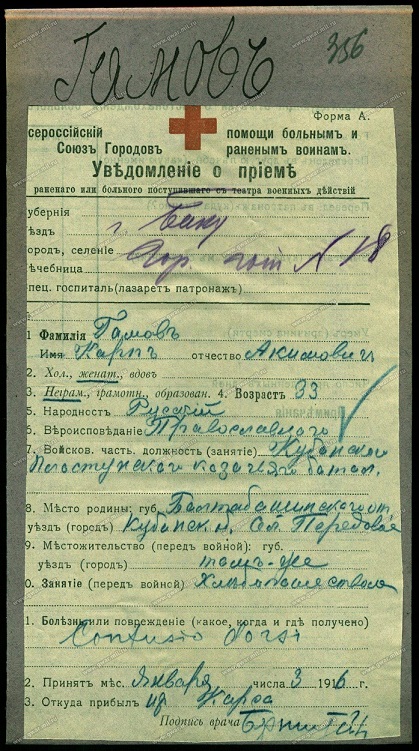 Гамовъ 356
Форма А.
сероссійскій помощи больнымъ и
Союзъ Городовъ раненымъ воинамъ.
Увѣдомленіе о пріемѣ
раненаго или больного поступившаго съ театра военныхъ дѣйствій
уберния
ѣздъ г. Баку
ородъ, селеніе Гор. гос N 18
ѣчебница
пец. госпиталь(лазаретъ патронажъ)
1 Фамилія Гамовъ
Имя Карпъ отчество Акимовичъ
2. Хол., женат., вдовъ
3. Неграм., грамотн., образован. 4. Возрастъ 33
5. Народность Русский
6. Вѣроисповѣданіе Православнаго
7. Войсков. часть. должность (занятіе) Кубанской
Пластунского казачьяго батал.
8. Мѣсто родины: губ. Баталпашинскаго от.
уѣздъ (городъ) Кубанск. Передовая
9. Мѣстожительство (передъ войной): губ.
уѣздъ (городъ) тамъ-же
0. Занятіе (передъ войной) Хлѣбопашествомъ
1. Болѣзнь или поврежденіе (какое, когда и гдѣ получено)
Contusio dorsi
2. Принятъ мѣс. Января числа 3 1916 г.
3. Откуда прибылъ из Карса
Подпись врача